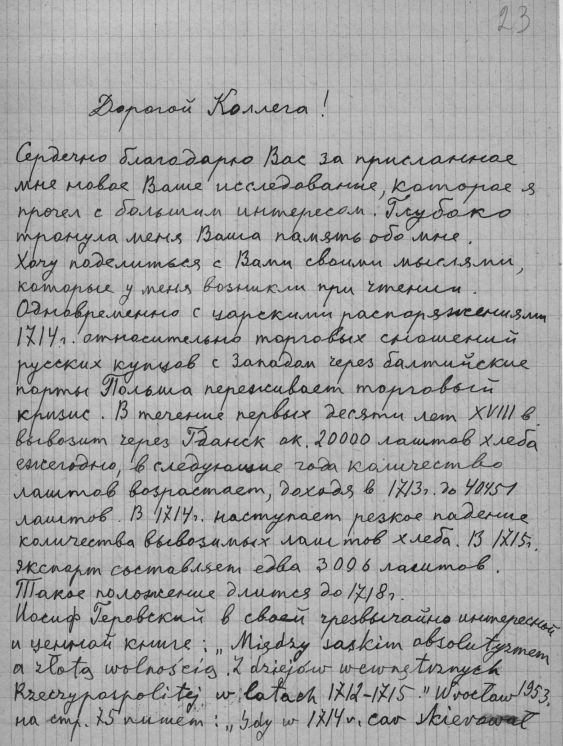 23
Дорогой Коллега!
Сердечно благодарю Вас за присланное
мне новое Ваше исследование, которое я
прочел с большим интересом. Глубоко
тронула меня Ваша память обо мне.
Хочу поделиться с Вами своими мыслями,
которые у меня возникли при чтении.
Одновременно с царскими распоряжениями
1714г. относительно торговых сношений
русских купцов с Западом через балтийские
порты Польша переживает торговый
кризис. В течение первых десяти лет XVIII в.
вывозит через Гданск ок. 20000 лаштов хлеба
ежегодно, в следующие года количество
лаштов возрастает, доходя в 1713г. до 40451
лаштов. В 1714г. наступает резкое падение
количества вывозимых лаштов хлеба. В 1715г.
экспорт составляет едва 3096 лаштов.
Такое положение длится до 1718г.
Иосиф Геровский в своей чрезвычайно интересной
и ценной книге: „Między saskim absolutyzmem
a złotą wolnością. Z dziejów wewnętrznych
Rzeczypospolitej w latach 1712-1715." Wrocław 1953.
на стр. 75 пишет: „Gdy w 1714 r. car skierował